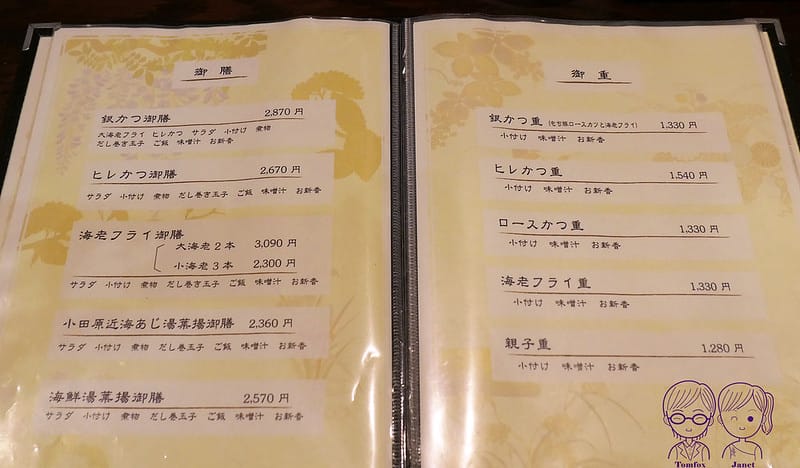 御膳
銀かつ御膳 2,870 円
大海老フライ ヒレかつ サラダ 小付け 煮物
だし巻き玉子 ご飯 味噌汁 お新香
ヒレかつ御膳 2,670 円
サラダ 小付け 煮物 だし巻き玉子 ご飯 味噌汁 お新香
海老フライ御膳
大海老2本 3,090 円
小海老3本 2,300 円
サラダ 小付け 煮物 だし巻き玉子 ご飯 味噌汁 お新香
小田原近海あじ湯葉揚御膳 2,360 円
サラダ 小付け 煮物 だし巻玉子 ご飯 味噌汁 お新香
海鮮湯葉揚御膳 2,570 円
サラダ 小付け 煮物 だし巻玉子 ご飯 味噌汁 お新香
御重
銀かつ重 (もち豚ロースカツと海老フライ) 1,330 円
小付け 味噌汁 お新香
ヒレかつ重 1,540 円
小付け 味噌汁 お新香
ロースかつ重 1,330 円
小付け 味噌汁 お新香
海老フライ重 1,330 円
小付け 味噌汁 お新香
親子重 1,280 円
小付け 味噌汁 お新香
Tomfox Janet